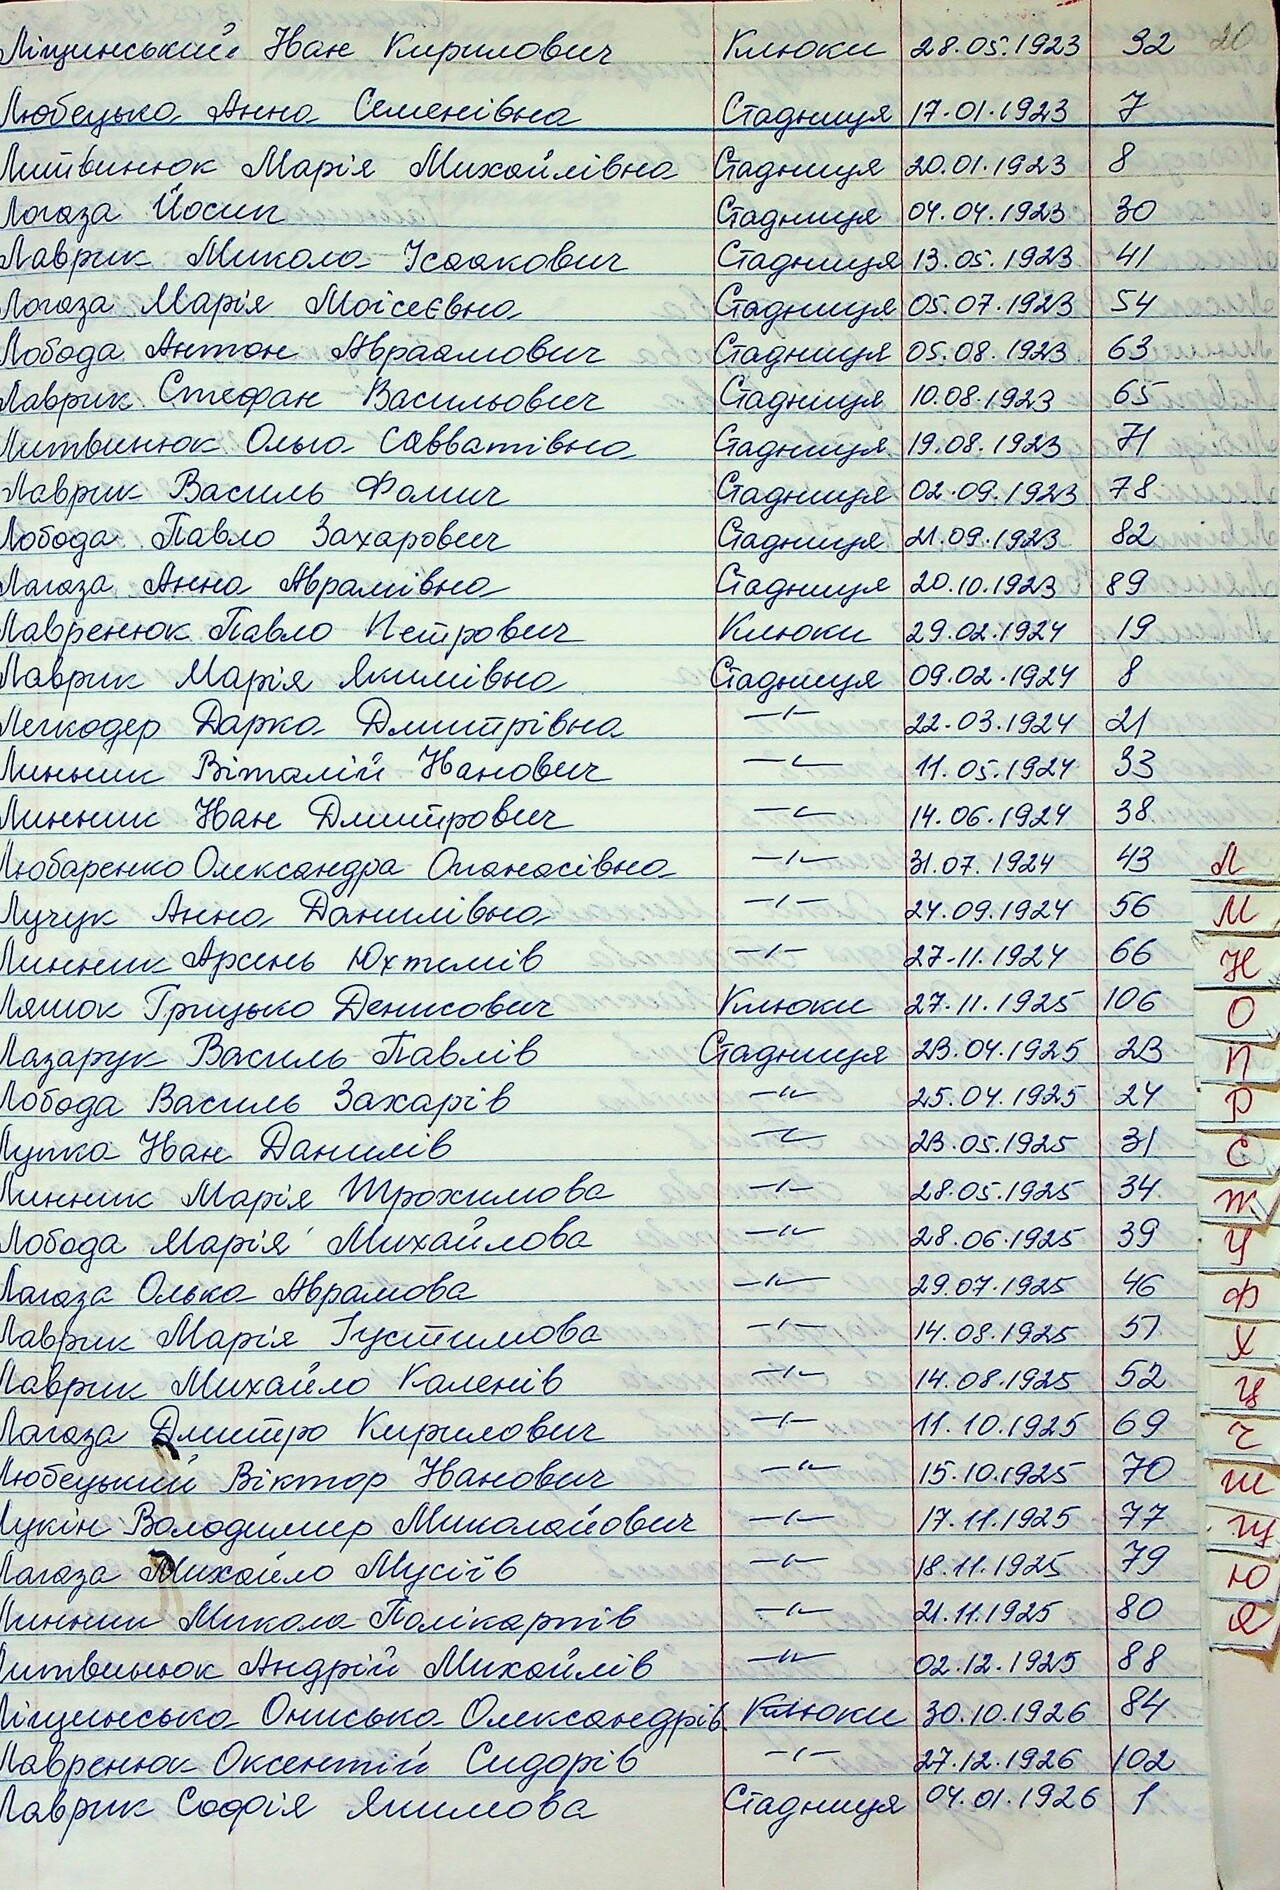 Ліщинський Іван Кирилович Клюки 28.05.1923 32 20
Любецька Анна Семенівна Стадниця 17.01.1923 7
Литвинюк Марія Михайлівна Стадниця 20.01.1923 8
Логаза Йосип Стадниця 04.04.1923 30
Лаврик Микола Ісаакович Стадниця 13.05.1923 41
Логаза Марія Моісеєвна Стадниця 05.07.1923 54
Лобода Антон Авраамович Стадниця 05.08.1923 63
Лаврик Стефан Васильович Стадниця 10.08.1923 65
Литвинюк Ольга Савватівна Стадниця 19.08.1923 71
Лаврик Василь Фомич Стадниця 02.09.1923 78
Лобода Павло Захарович Стадниця 21.09.1923 82
Лагаза Анна Аврамівна Стадниця 20.10.1923 89
Лавренюк Павло Петрович Клюки 29.02.1924 19
Лаврик Марія Якимівна Стадниця 09.02.1924 8
Легкодер Дарка Дмитрівна —"— 22.03.1924 21
Линник Віталій Іванович —"— 11.05.1924 33
Линник Іван Дмитрович —"— 14.06.1924 38
Любаренко Олександра Опанасівна —"— 31.07.1924 43 Л
Лучук Анна Данилівна —"— 24.09.1924 56 М
Линник Арсень Юхтемів —"— 27.11.1924 66 Н
Ляшок Грицько Денисович Клюки 27.11.1925 106 О
Лазарук Василь Павлів Стадниця 23.04.1925 23 П
Лобода Василь Захарів —"— 25.04.1925 24 Р
Лупка Іван Данилів —"— 23.05.1925 31 С
Линник Марія Трохимова —"— 28.05.1925 34 Т
Лобода Марія Михайлова —"— 28.06.1925 39 У
Лагаза Олька Аврамова —"— 29.07.1925 46 Ф
Лаврик Марія Іустимова —"— 14.08.1925 51 Х
Лаврик Михайло Каленів —"— 14.08.1925 52 Ц
Лагаза Дмитро Кирилович —"— 11.10.1925 69 Ч
Любецький Віктор Іванович —"— 15.10.1925 70 Ш
Лукін Володимир Миколайович —"— 17.11.1925 77 Щ
Лагаза Михайло Мусіїв —"— 18.11.1925 79 Ю
Линник Микола Полікартів —"— 21.11.1925 80 Я
Литвинюк Андрій Михайлів —"— 02.12.1925 88
Ліщинська Ониська Олександрів Клюки 30.10.1926 84
Лавренюк Оксентій Сидорів —"— 27.12.1926 102
Лаврик Софія Якимова Стадниця 04.01.1926 1